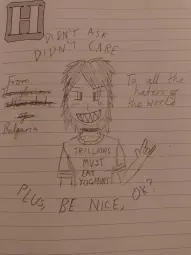 H
DIDN'T ASK
DIDN'T CARE
From
Bulgaria
To all the
haters of
the world
TRILLIONS
MUST
EAT
YOGHURT
PLUS, BE NICE, OK?